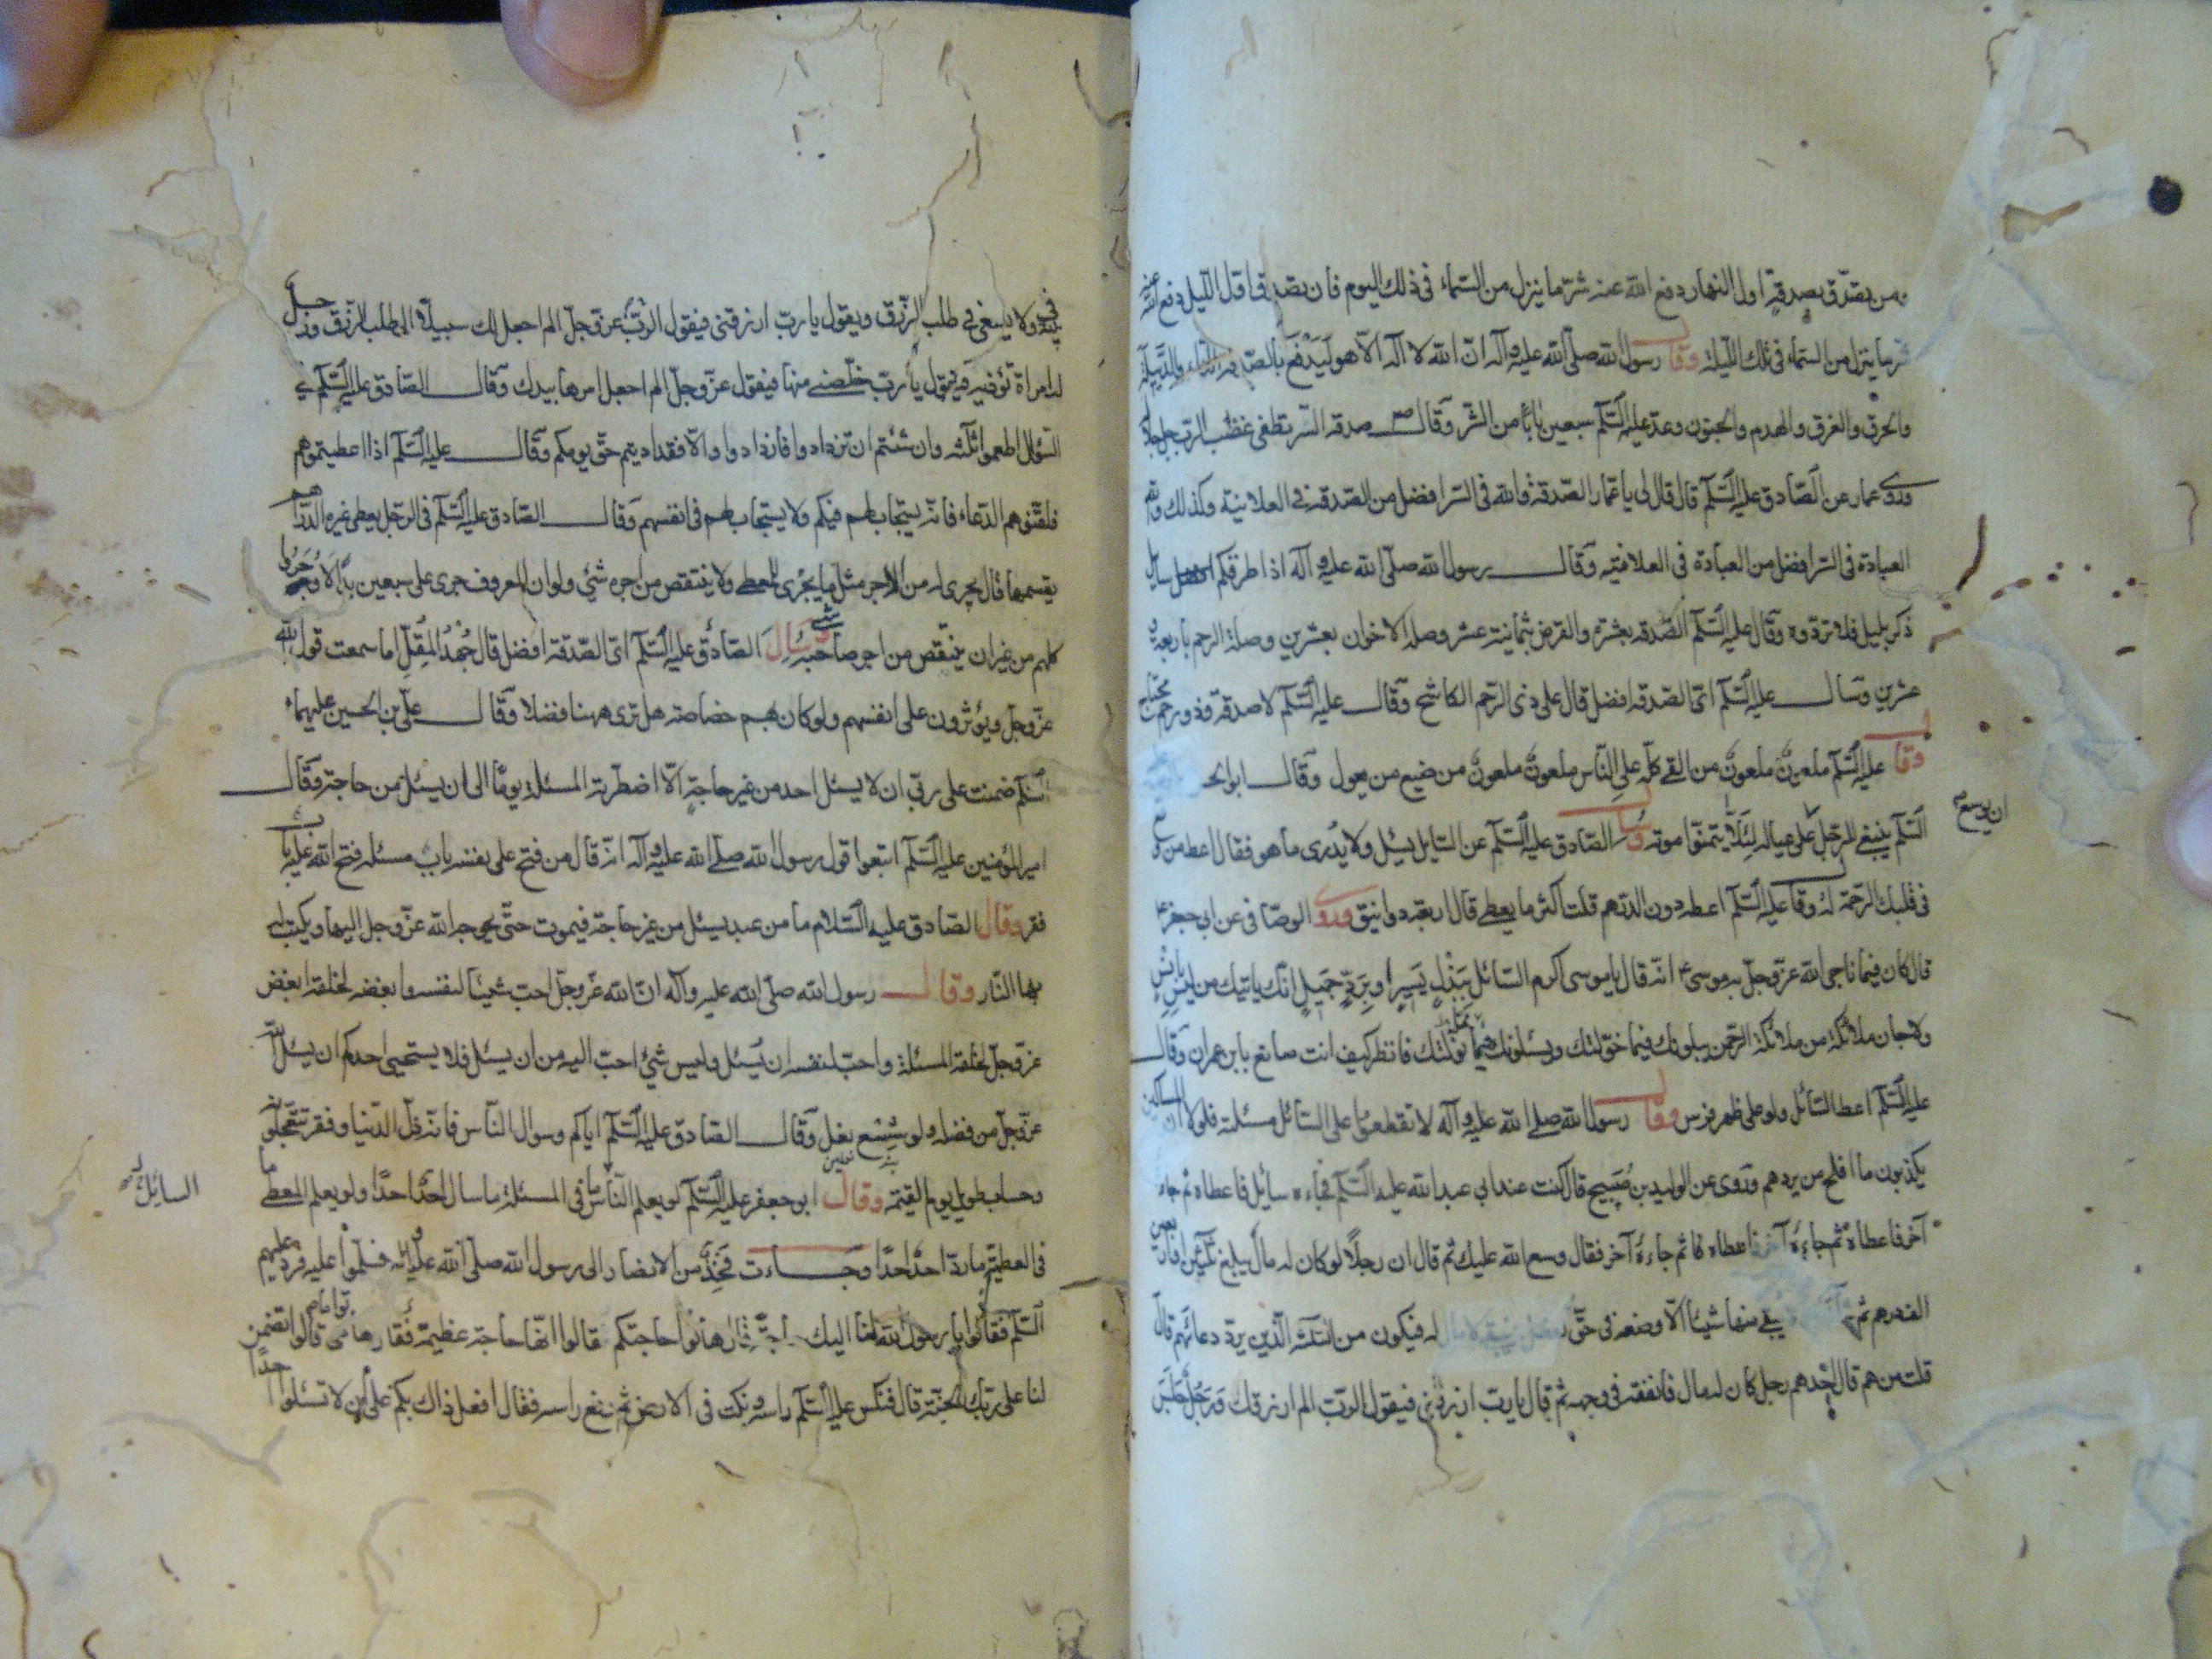 ومن تصدق بصدقة اول النهار دفع الله عنه شر ما ينزل من السماء فى ذلك اليوم فان تصدق اول الليل دفع الله عنه
شر ما ينزل من السماء فى تلك الليلة وقال رسول الله صلى الله عليه وآله ان الله لا اله الا هو ليدفع بالصدقة الداء والدبيلة
والحرق والغرق والهدم والجنون وعد عليه السلم سبعين بابا من الشر وقال ص صدقة السر تطفى غضب الرب جل جلاله
وروى عمار عن الصادق عليه السلم قال قال لى يا عمار الصدقة والله فى السر افضل من الصدقة فى العلانية وكذلك والله
العبادة فى السر افضل من العبادة فى العلانية وقال رسول الله صلى الله عليه وآله اذا طرقكم سايل
ذكر بليل فلا تردوه وقال عليه السلم الصدقة بعشرة والقرض بثمانية عشر وصلة الاخوان بعشرين وصلة الرحم باربعة و
عشرين وسال عليه السلم اى الصدقة افضل قال على ذى الرحم الكاشح وقال عليه السلم لا صدقة وذو رحم محتاج
وقال عليه السلم ملعون ملعون من القى كله على الناس ملعون ملعون من ضيع من يعول وقال ابو الحـ
ان يوسع
السلم ينبغى للرجل على عياله لئلا يتمنوا موته وسئل الصادق عليه السلم عن السايل يسئل ولا يدرى ما هو فقال اعط من وقع
فى قلبك الرحمة له وقال عليه السلم اعطه دون الدرهم قلت اكثر ما يعطى قال اربعة دوانيق وروى الوصافى عن ابى جعفر ع
قال كان فيما ناجى الله عز وجل به موسى ع انه قال يا موسى اكرم السائل ببذل يسير او برد جميل انك ياتيك من ليس بانس
ولا جان ملائكة من ملائكة الرحمن يبلونك فيما خولتك ويسئلونك فيما نولتك فانظر كيف انت صانع يا بن عمران وقال
عليه السلم اعط السائل ولو على ظهر فرس وقال رسول الله صلى الله عليه وآله لا تقطعوا على السائل مسئلته فلولا ان المساكين
يكذبون ما افلح من يردهم وروى عن الوليد بن صبيح قال كنت عند ابى عبد الله عليه السلم فجاءه سائل فاعطاه ثم جاءه
آخر فاعطاه ثم جاءه آخر فاعطاه ثم جاءه آخر فقال وسع الله عليك ثم قال ان رجلا لو كان له مال يبلغ ثلثين او اربعين
الف درهم ثم يبقى منها شيئا الا وضعه فى حق له فيكون من الثلثة الذين يرد دعائهم قال
قلت من هم قال احدهم رجل كان له مال فانفقه فى وجهه ثم قال يا رب ارزقنى فيقول الرب الم ارزقك ورجل جلس
فى بيته ولا يسعى فى طلب الرزق ويقول يا رب ارزقنى فيقول الرب عز وجل الم اجعل لك سبيلا الى طلب الرزق ورجل
له امراة تؤذيه فيقول يا رب خلصنى منها فيقول عز وجل الم اجعل امرها بيدك وقال الصادق عليه السلم فى
السؤال اطعموا ثلثه وان شئتم ان تزدادوا فازدادوا والا فقد اديتم حق يومكم وقال عليه السلم اذا اعطيتموهم
فلقنوهم الدعاء فانه يستجاب لهم فيكم ولا يستجاب لهم فى انفسهم وقال الصادق عليه السلم فى الرجل يعطى غيره الدراهم
يقسمها قال يجرى له من الاجر مثل ما يجرى للمعطى ولا ينتقص من اجره شئ ولو ان المعروف جرى على سبعين يدا لاوجروا
كلهم من غير ان ينتقص من اجر صاحبه شئ وسئال الصادق عليه السلم اى الصدقة افضل قال جهد المقل اما سمعت قول الله
عز وجل ويؤثرون على انفسهم ولو كان بهم خصاصة هل ترى ههنا فضلا وقال على بن الحسين عليهما
السلم ضمنت على ربى ان لا يسئل احد من غير حاجة الا اضطرته المسئلة يوما الى ان يسئل من حاجة وقال
امير المؤمنين عليه السلم اتبعوا قول رسول الله صلى الله عليه وآله انه قال من فتح على نفسه باب مسئلة فتح الله عليه باب
فقر وقال الصادق عليه السلام ما من عبد يسئل من غير حاجة فيموت حتى يحوجه الله عز وجل اليها ويكتب له
بها النار وقال رسول الله صلى الله عليه وآله ان الله عز وجل احب شيئا لنفسه وابغضه لخلقه ابغض
عز وجل لخلقه المسئلة واحب لنفسه ان يسئل وليس شئ احب اليه من ان يسئل فلا يستحيى احدكم ان يسئل الله
عز وجل من فضله ولو شسع نعل وقال الصادق عليه السلم اياكم وسوال الناس فانه ذل الدنيا وفقر تتعجلونه
وحساب طويل يوم القيمة وقال ابو جعفر عليه السلم لو يعلم الناس ما فى المسئلة ما سال احد احدا ولو يعلم المعطى ما
السايل
فى العطية ما رد احد احدا وجاءت فخذ من الانصار الى رسول الله صلى الله عليه وآله فسلموا عليه فرد عليهم
السلم فقالوا يا رسول الله لنا اليك حاجة فقال هاتوا حاجتكم قالوا انها حاجة عظيمة فقال هاتوا ما هى قالوا تضمن
لنا على ربك الجنة قال فنكس عليه السلم راسه ونكت فى الارض ثم رفع راسه فقال افعل ذاك بكم على ان لا تسئلوا احدا